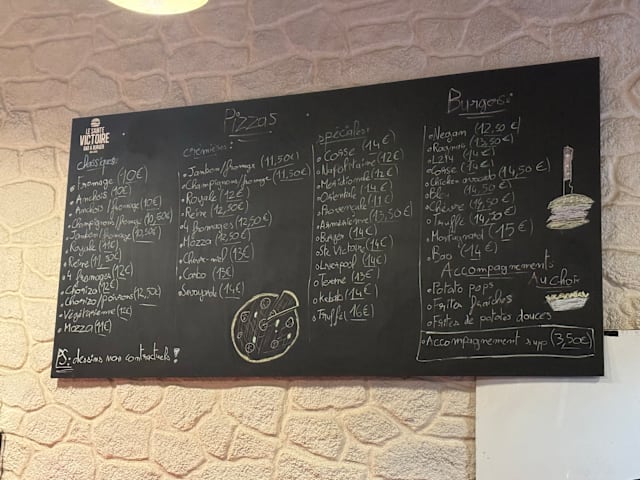 LE SAINTE
VICTOIRE
BAR & BURGER
Pizzas
classiques:
• Fromage (10€)
• Anchois (10€)
• Anchois/fromage (10€)
• Champignons/fromage (10,50€)
• Jambon/fromage (10,50€)
• Royale (11€)
• Reine (11,50€)
• 4 fromages (12€)
• Chorizo (12€)
• Chorizo/poivrons (12,50€)
• Végétarienne (12€)
• Mozza (11€)
PS: dessins non contractuels!
crémières:
• Jambon/fromage (11,50€)
• Champignons/fromage (11,50€)
• Royale (12€)
• Reine (12,50€)
• 4 fromages (12,50€)
• Mozza (12,50€)
• Chèvre-miel (13€)
• Carbo (13€)
• Savoyarde (14€)
spéciales:
• Corse (14€)
• Napolitaine (12€)
• Méridionale (12€)
• Orientale (14€)
• Provençale (11€)
• Arménienne (13,50€)
• Burger (14€)
• Ste Victoire (14€)
• Liverpool (14€)
• Texane (13€)
• Kebab (14€)
• Truffe (16€)
Burgers:
• Vegan (12,50€)
• (13,50€)
• L214 (14€)
• Corse (14€)
• Chicken avocado (14,50€)
• (14,50€)
• Chèvre (14,50€)
• Truffe (14,50€)
• Montagnard (15€)
• Bao (14€)
Accompagnements
Au choix
• Potato pops
• Frites fraîches
• Frites de patates douces
• Accompagnement supp (3,50€)